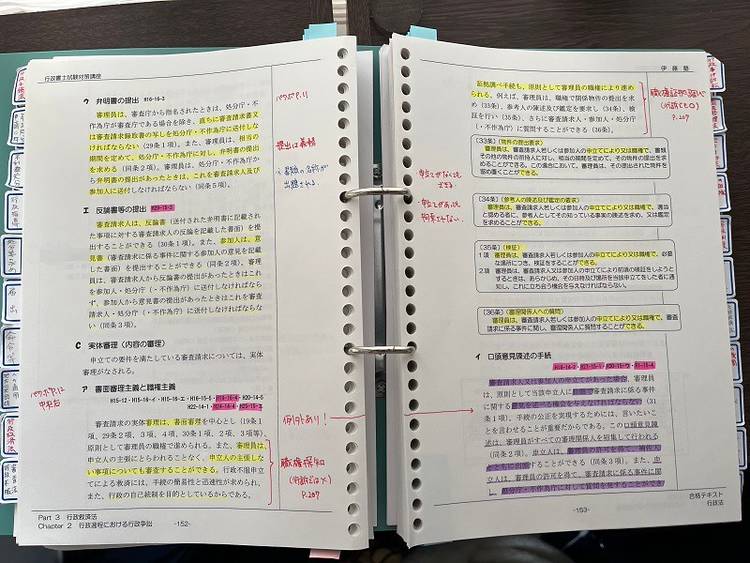 行政書士試験対策講座
ウ 弁明書の提出 H16-16-3
審理員は、審査庁から指名されたときは、処分庁・不
作為庁が審査庁である場合を除き、直ちに審査請求書又
は審査請求録取書の写しを処分庁・不作為庁に送付しな
ければならない（29条1項）。また、審理員は、相当の
期間を定めて、処分庁・不作為庁に対し、弁明書の提出
を求める（同条2項）。審理員は、処分庁・不作為庁か
ら弁明書の提出があったときは、これを審査請求人及び
参加人に送付しなければならない（同条5項）。
提出は義務
エ 反論書等の提出 H29-15-2
審査請求人は、反論書（送付された弁明書に記載され
た事項に対する審査請求人の反論を記載した書面）を提
出することができる（30条1項）。また、参加人は、意
見書（審査請求に係る事件に関する参加人の意見を記載
した書面）を提出することができる（同条2項）。審理
員は、審査請求人から反論書の提出があったときはこれを
参加人・処分庁（・不作為庁）に送付しなければなら
ず、参加人から意見書の提出があったときはこれを審査請
求人・処分庁（・不作為庁）に送付しなければならない
（同条3項）。
C 実体審理（内容の審理）
申立ての要件を満たしている審査請求については、実体
審理がなされる。
ア 書面審理主義と職権主義
審査請求の実体審理は、書面審理を中心とし（19条1
項、29条2項、3項、4項、30条1項、2項、3項等）、
原則として審理員の職権で進められる。また、審理員は、
申立人の主張にとらわれることなく、申立人の主張しな
い事項についても審査することができる。行政不服申立
てによる救済には、手続の簡易性と迅速性が求められ、
また、行政の自己統制を目的としているからである。
例外あり！
職権探知
（行訴では×）
P.207
Part 3 行政救済法
Chapter 2 行政過程における行政争訟
-152-
伊藤塾
証拠調べ手続も、原則として審理員の職権により進め
られる。例えば、審理員は、職権で関係物件の提出を求
め（33条）、参考人の陳述及び鑑定を要求し（34条）、検
証を行い（35条）、さらに審査請求人・参加人・処分庁
（・不作為庁）に質問することができる（36条）。
職権証拠調べ
P.207
[33条]（物件の提出要求）
審理員は、審査請求人若しくは参加人の申立てにより又は職権で、書類
その他の物件の所持人に対し、相当の期間を定めて、その物件の提出を求め
ることができる。この場合において、審理員は、その提出された物件を
留め置くことができる。
[34条]（参考人の陳述及び鑑定の要求）
審理員は、審査請求人若しくは参加人の申立てにより又は職権で、適当
と認める者に、参考人としてその知っている事実の陳述を求め、又は鑑定
を求めることができる。
[35条]（検証）
1項 審理員は、審査請求人若しくは参加人の申立てにより又は職権で、必要
な場所につき、検証をすることができる。
2項 審理員は、審査請求人又は参加人の申立てにより前項の検証をしようと
するときは、あらかじめ、その日時及び場所を当該申立てをした者に通知
し、これに立ち会う機会を与えなければならない。
[36条]（審理関係人への質問）
審理員は、審査請求人若しくは参加人の申立てにより又は職権で、審査
請求に係る事件に関し、審理関係人に質問することができる。
イ 口頭意見陳述の手続
審査請求人又は参加人の申立てがあった場合、審理員
は、原則として当該申立人に口頭で審査請求に係る事件
に関する意見を述べる機会を与えなければならない（31
条1項）。手続の公正を実現するためには、言いたいこ
とを言わせることが重要だからである。この口頭意見陳
述は、審理員がすべての審理関係人を招集して行われる
（同条2項）。申立人は、審理員の許可を得て、補佐人
とともに出頭することができる（同条3項）。また、申立
人は、審理員の許可を得て、審査請求に係る事件に関
し、処分庁・不作為庁に対して質問を発することができ
-153-
合格テキスト
行政法